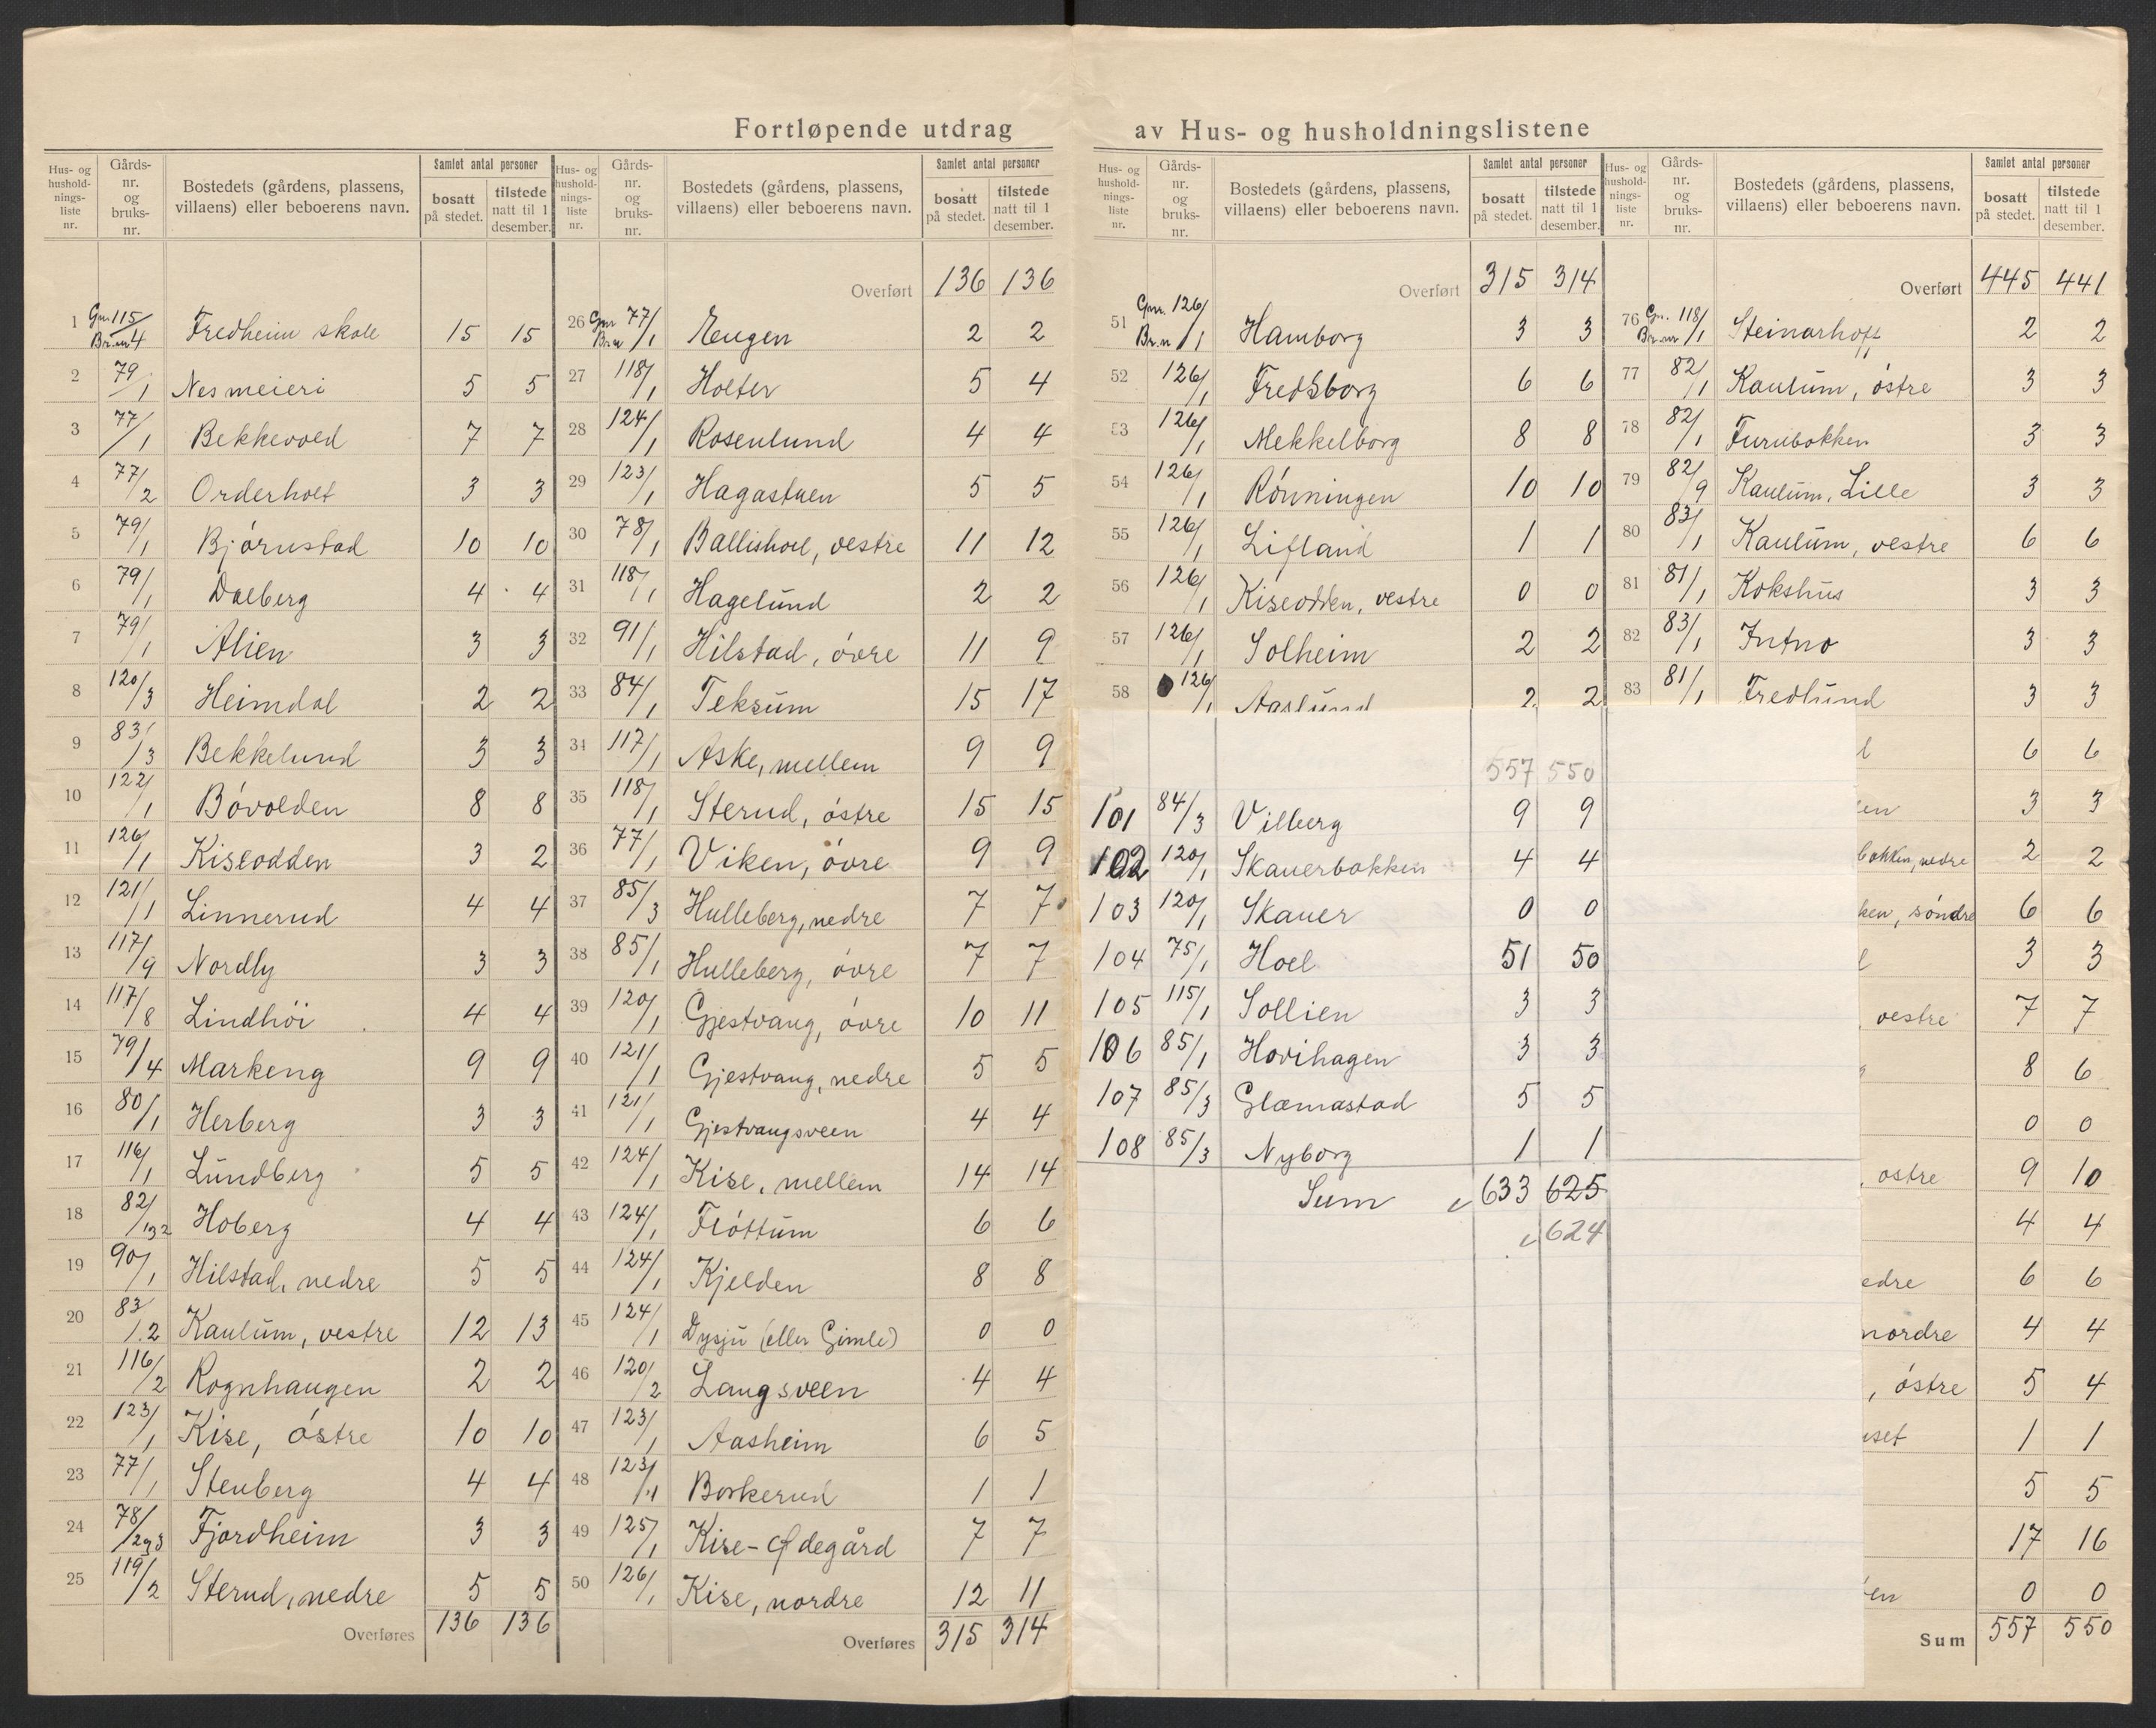 Fortløpende utdrag av Hus- og husholdningslistene
Hus- og hushold-nings-liste nr. | Gårds-nr. og bruks-nr. | Bostedets (gårdens, plassens, villaens) eller beboerens navn. | Samlet antal personer | bosatt på stedet. | tilstede natt til 1 desember.
1 Gnr. 115/ Br.nr 4 Fredheim skole 15 15
2 79/1 Nes meieri 5 5
3 77/1 Bekkevold 7 7
4 77/2 Orderholt 3 3
5 79/1 Bjørnstad 10 10
6 79/1 Dalberg 4 4
7 79/1 Alien 3 3
8 120/3 Heimdal 2 2
9 83/3 Bekkelund 3 3
10 122/1 Bóvolden 8 8
11 126/1 Kiseodden 3 2
12 121/1 Linnerud 4 4
13 117/9 Nordly 3 3
14 117/8 Lindhói 4 4
15 79/4 Markeng 9 9
16 80/1 Herberg 3 3
17 116/1 Lundberg 5 5
18 82/132 Hoberg 4 4
19 90/1 Hilstad, nedre 5 5
20 83/1.2 Kaulum, vestre 12 13
21 116/2 Rognhaugen 2 2
22 123/1 Kise, óstre 10 10
23 77/1 Stenberg 4 4
24 78/2og3 Fjordheim 3 3
25 119/2 Sterud, nedre 5 5
Overføres 136 136
Hus- og hushold-nings-liste nr. | Gårds-nr. og bruks-nr. | Bostedets (gårdens, plassens, villaens) eller beboerens navn. | Samlet antal personer | bosatt på stedet. | tilstede natt til 1 desember.
Overført 136 136
26 Gnr 77/ Br.nr 1 Eugen 2 2
27 118/1 Holter 5 4
28 124/1 Rosenlund 4 4
29 123/1 Hagastuen 5 5
30 78/1 Ballishol, vestre 11 12
31 118/1 Hagelund 2 2
32 91/1 Hilstad, óvre 11 9
33 84/1 Teksum 15 17
34 117/1 Aske, mellem 9 9
35 118/1 Sterud, óstre 15 15
36 77/1 Viken, óvre 9 9
37 85/3 Hulleberg, nedre 7 7
38 85/1 Hulleberg, óvre 7 7
39 120/1 Gjestvang, óvre 10 11
40 121/1 Gjestvang, nedre 5 5
41 121/1 Gjestvangsveen 4 4
42 124/1 Kise, mellem 14 14
43 124/1 Flóttum 6 6
44 124/1 Kjelden 8 8
45 124/1 Dysju (eller Gimle) 0 0
46 120/2 Langsveen 4 4
47 123/1 Aasheim 6 5
48 123/1 Borkerud 1 1
49 125/1 Kise-Ødegård 7 7
50 126/1 Kise, nordre 12 11
Overføres 315 314
Hus- og hushold-nings-liste nr. | Gårds-nr. og bruks-nr. | Bostedets (gårdens, plassens, villaens) eller beboerens navn. | Samlet antal personer | bosatt på stedet. | tilstede natt til 1 desember.
Overført 315 314
51 Gnr. 126/ Br.n 1 Hamborg 3 3
52 126/1 Fredsborg 6 6
53 126/1 Mekkelborg 8 8
54 126/1 Rónningen 10 10
55 126/1 Lifland 1 1
56 126/1 Kiseodden, vestre 0 0
57 126/1 Solheim 2 2
58 126/1 Aaslund 2 2
557 550
101 84/3 Vilberg 9 9
102 120/1 Skauerbakken 4 4
103 120/1 Skauer 0 0
104 75/1 Hoel 51 50
105 115/1 Sollien 3 3
106 85/1 Hovihagen 3 3
107 85/3 Glæmastad 5 5
108 85/3 Nyborg 1 1
Sum 633 625
624
Hus- og hushold-nings-liste nr. | Gårds-nr. og bruks-nr. | Bostedets (gårdens, plassens, villaens) eller beboerens navn. | Samlet antal personer | bosatt på stedet. | tilstede natt til 1 desember.
Overført 445 441
76 Gn. 118/ Br.nr 1 Steinarhoff 2 2
77 82/1 Kaulum, óstre 3 3
78 82/1 Furubakken 3 3
79 82/9 Kaulum, Lille 3 3
80 83/1 Kaulum, vestre 6 6
81 81/1 Kokshus 3 3
82 83/1 Jutno 3 3
83 81/1 Fredlund 3 3
l 6 6
en 3 3
bakken, nedre 2 2
ken, sóndre 6 6
l 3 3
, vestre 7 7
8 6
0 0
, ostre 9 10
4 4
edre 6 6
nordre 4 4
, óstre 5 4
uset 1 1
5 5
17 16
en 0 0
Sum 557 550